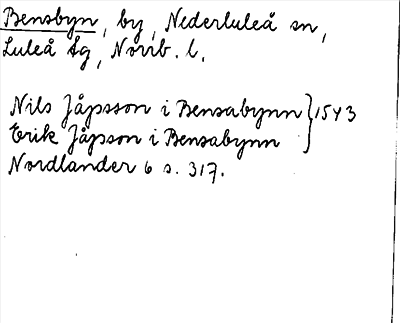 Bensbyn, by, Nederluleå sn,
Luleå tg, Norrb. l.
Nils Jåpsson i Bensabynn } 1543
Erik Jåpson i Bensabynn
Nordlander 6 s. 317.